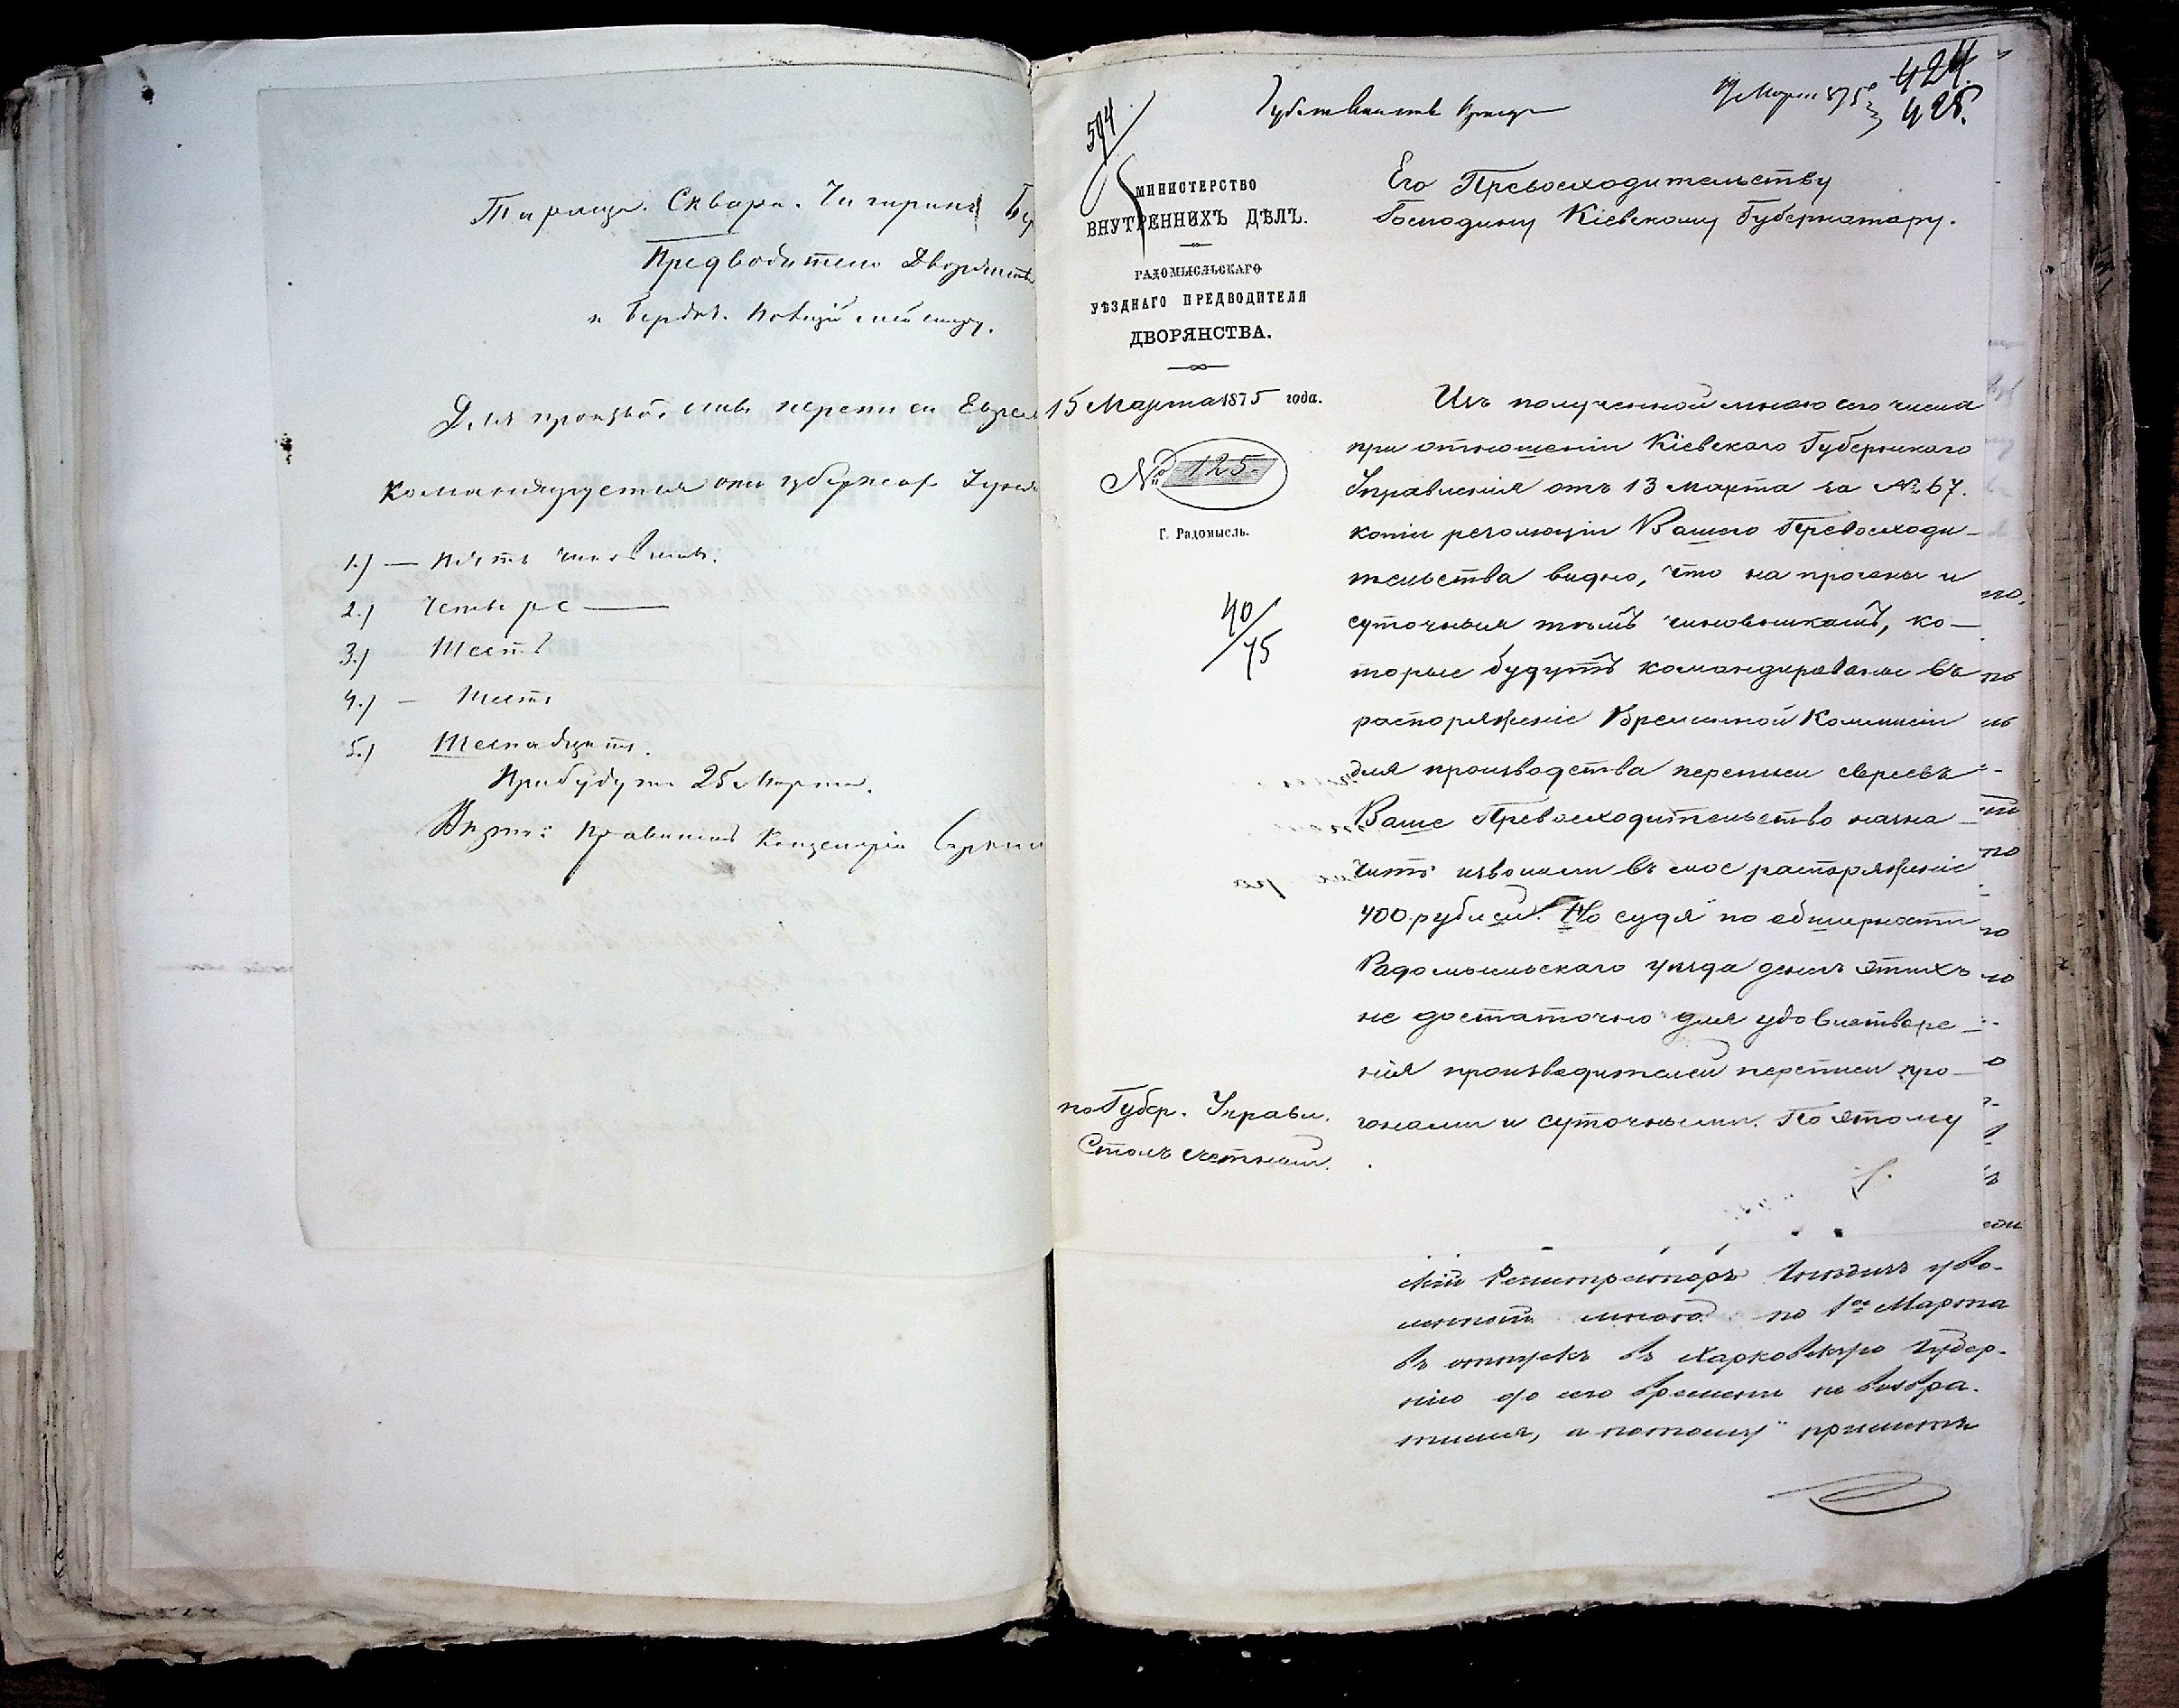 Таращ. Сквир. Чигирин.
Предводителю Дворянств
и Бердич.
Для производ. переписи Евреев
командируется отъ губерн.
1.) — пять
2.) Четыре —
3.) Шесть
4.) — Шесть
5.) Шестнадцать.
Прибудутъ 25 Марта.
Канцеляріи
594
19 Марта 875
424.
425.
МИНИСТЕРСТВО
ВНУТРЕННИХЪ ДѢЛЪ.
РАДОМЫСЛЬСКАГО
УѢЗДНАГО ПРЕДВОДИТЕЛЯ
ДВОРЯНСТВА.
15 Марта 1875 года.
№ 125
Г. Радомысль.
40/75
по Губер. Управл.
Столъ счетный.
Его Превосходительству
Господину Кіевскому Губернатору.
Изъ полученной мною сего числа
при отношеніи Кіевскаго Губернскаго
Управленія отъ 13 марта за № 67.
копіи резолюціи Вашего Превосходи-
тельства видно, что на прогоны и
суточныя тѣмъ чиновникамъ, ко-
торые будутъ командированы въ
распоряженіе Временной Коммисіи
для производства переписи евреевъ
Ваше Превосходительство назна-
чить изволили въ мое распоряженіе
400 рублей. Но судя по обширности
Радомысльскаго уѣзда денегъ этихъ
не достаточно для удовлетворе-
нія производителей переписи про-
гонами и суточными. По этому
Регистраторъ уво-
ленный мною по 1ое Марта
въ отпускъ въ Харковскую Губер-
нію до сего времени не возвра-
тился, а потому